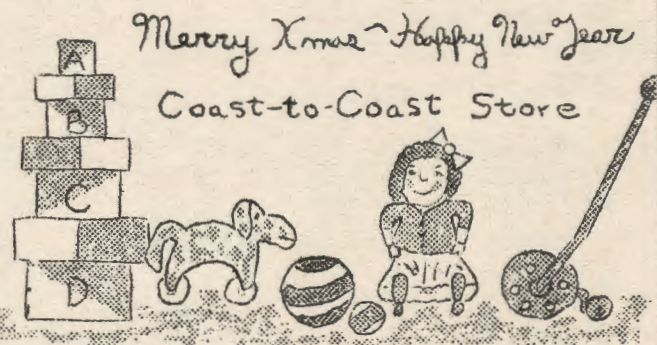 Merry Xmas - Happy New Year
Coast-to-Coast Store
A
B
C
D